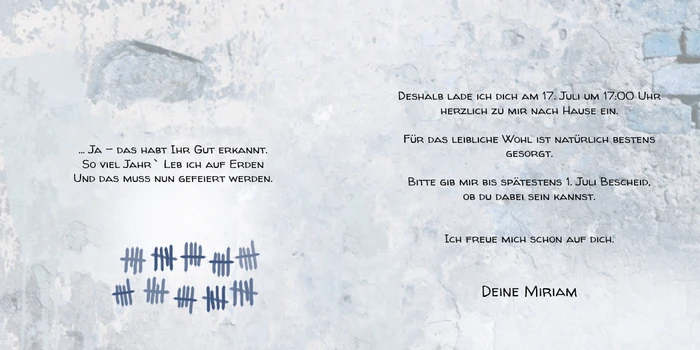 ... Ja – das habt Ihr Gut erkannt.
So viel Jahr` Leb ich auf Erden
Und das muss nun gefeiert werden.
Deshalb lade ich dich am 17. Juli um 17:00 Uhr
herzlich zu mir nach Hause ein.
Für das leibliche Wohl ist natürlich bestens
gesorgt.
Bitte gib mir bis spätestens 1. Juli Bescheid,
ob du dabei sein kannst.
Ich freue mich schon auf dich.
Deine Miriam